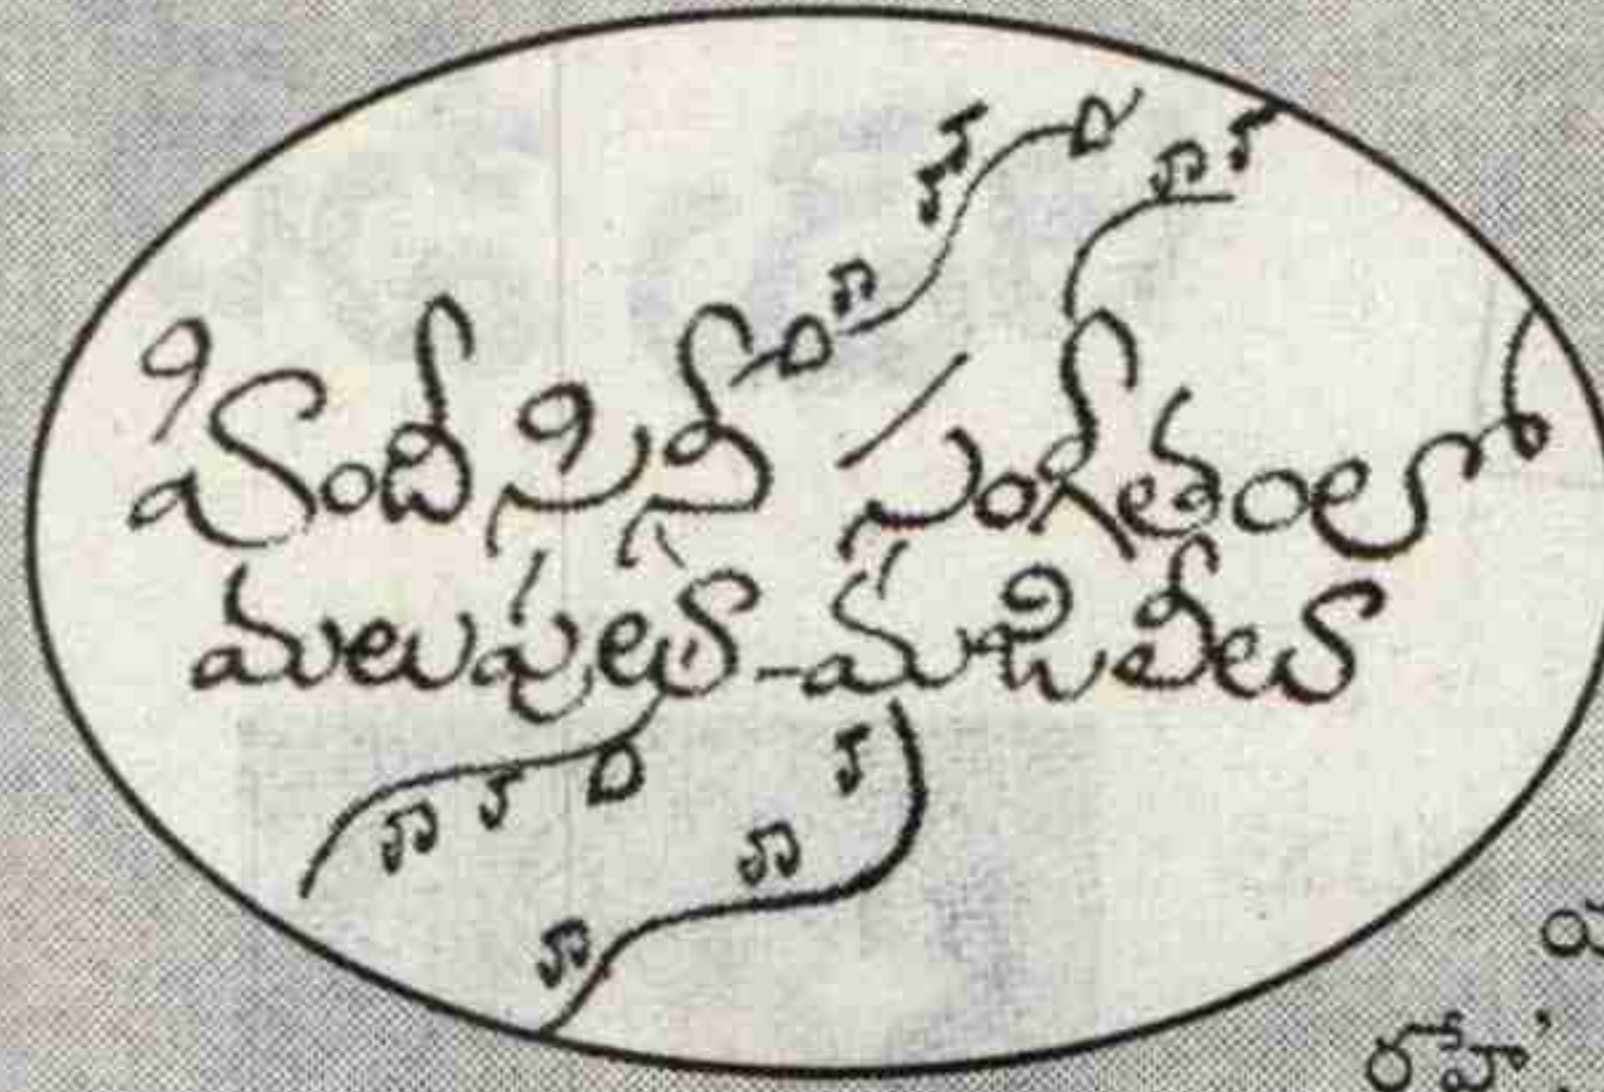 హిందీ సినీ సంగీతంలో
మలుపులు-మజిలీలు
రోహా'